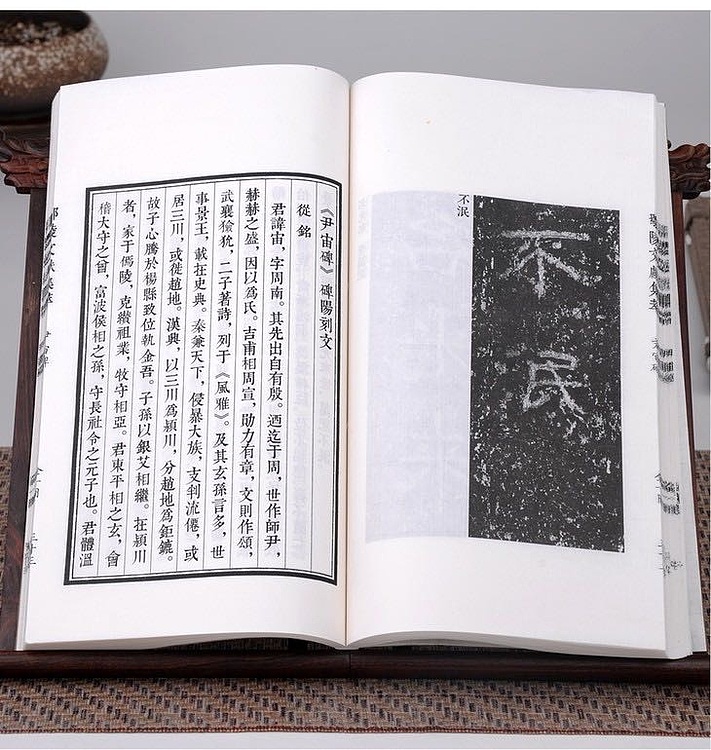 不泯
不泯
《尹宙碑》碑陽刻文
從銘
君諱宙，字周南。其先出自有殷。迺迄于周，世作師尹，
赫赫之盛，因以爲氏。吉甫相周宣，助力有章，文則作頌，
武襄獫狁，二子著詩，列于《風雅》。及其玄孫言多，世
事景王，載扗史典。秦兼天下，侵暴大族，支判流僊，或
居三川，或徙趙地。漢興，以三川爲潁川，分趙地爲鉅鏕。
故子心騰於楊縣致位執金吾。子孫以銀艾相繼。扗潁川
者，家于傿陵，克纘祖業，牧守相亞。君東平相之玄，會
稽大守之曾，富波侯相之孫，守長社令之元子也。君體溫